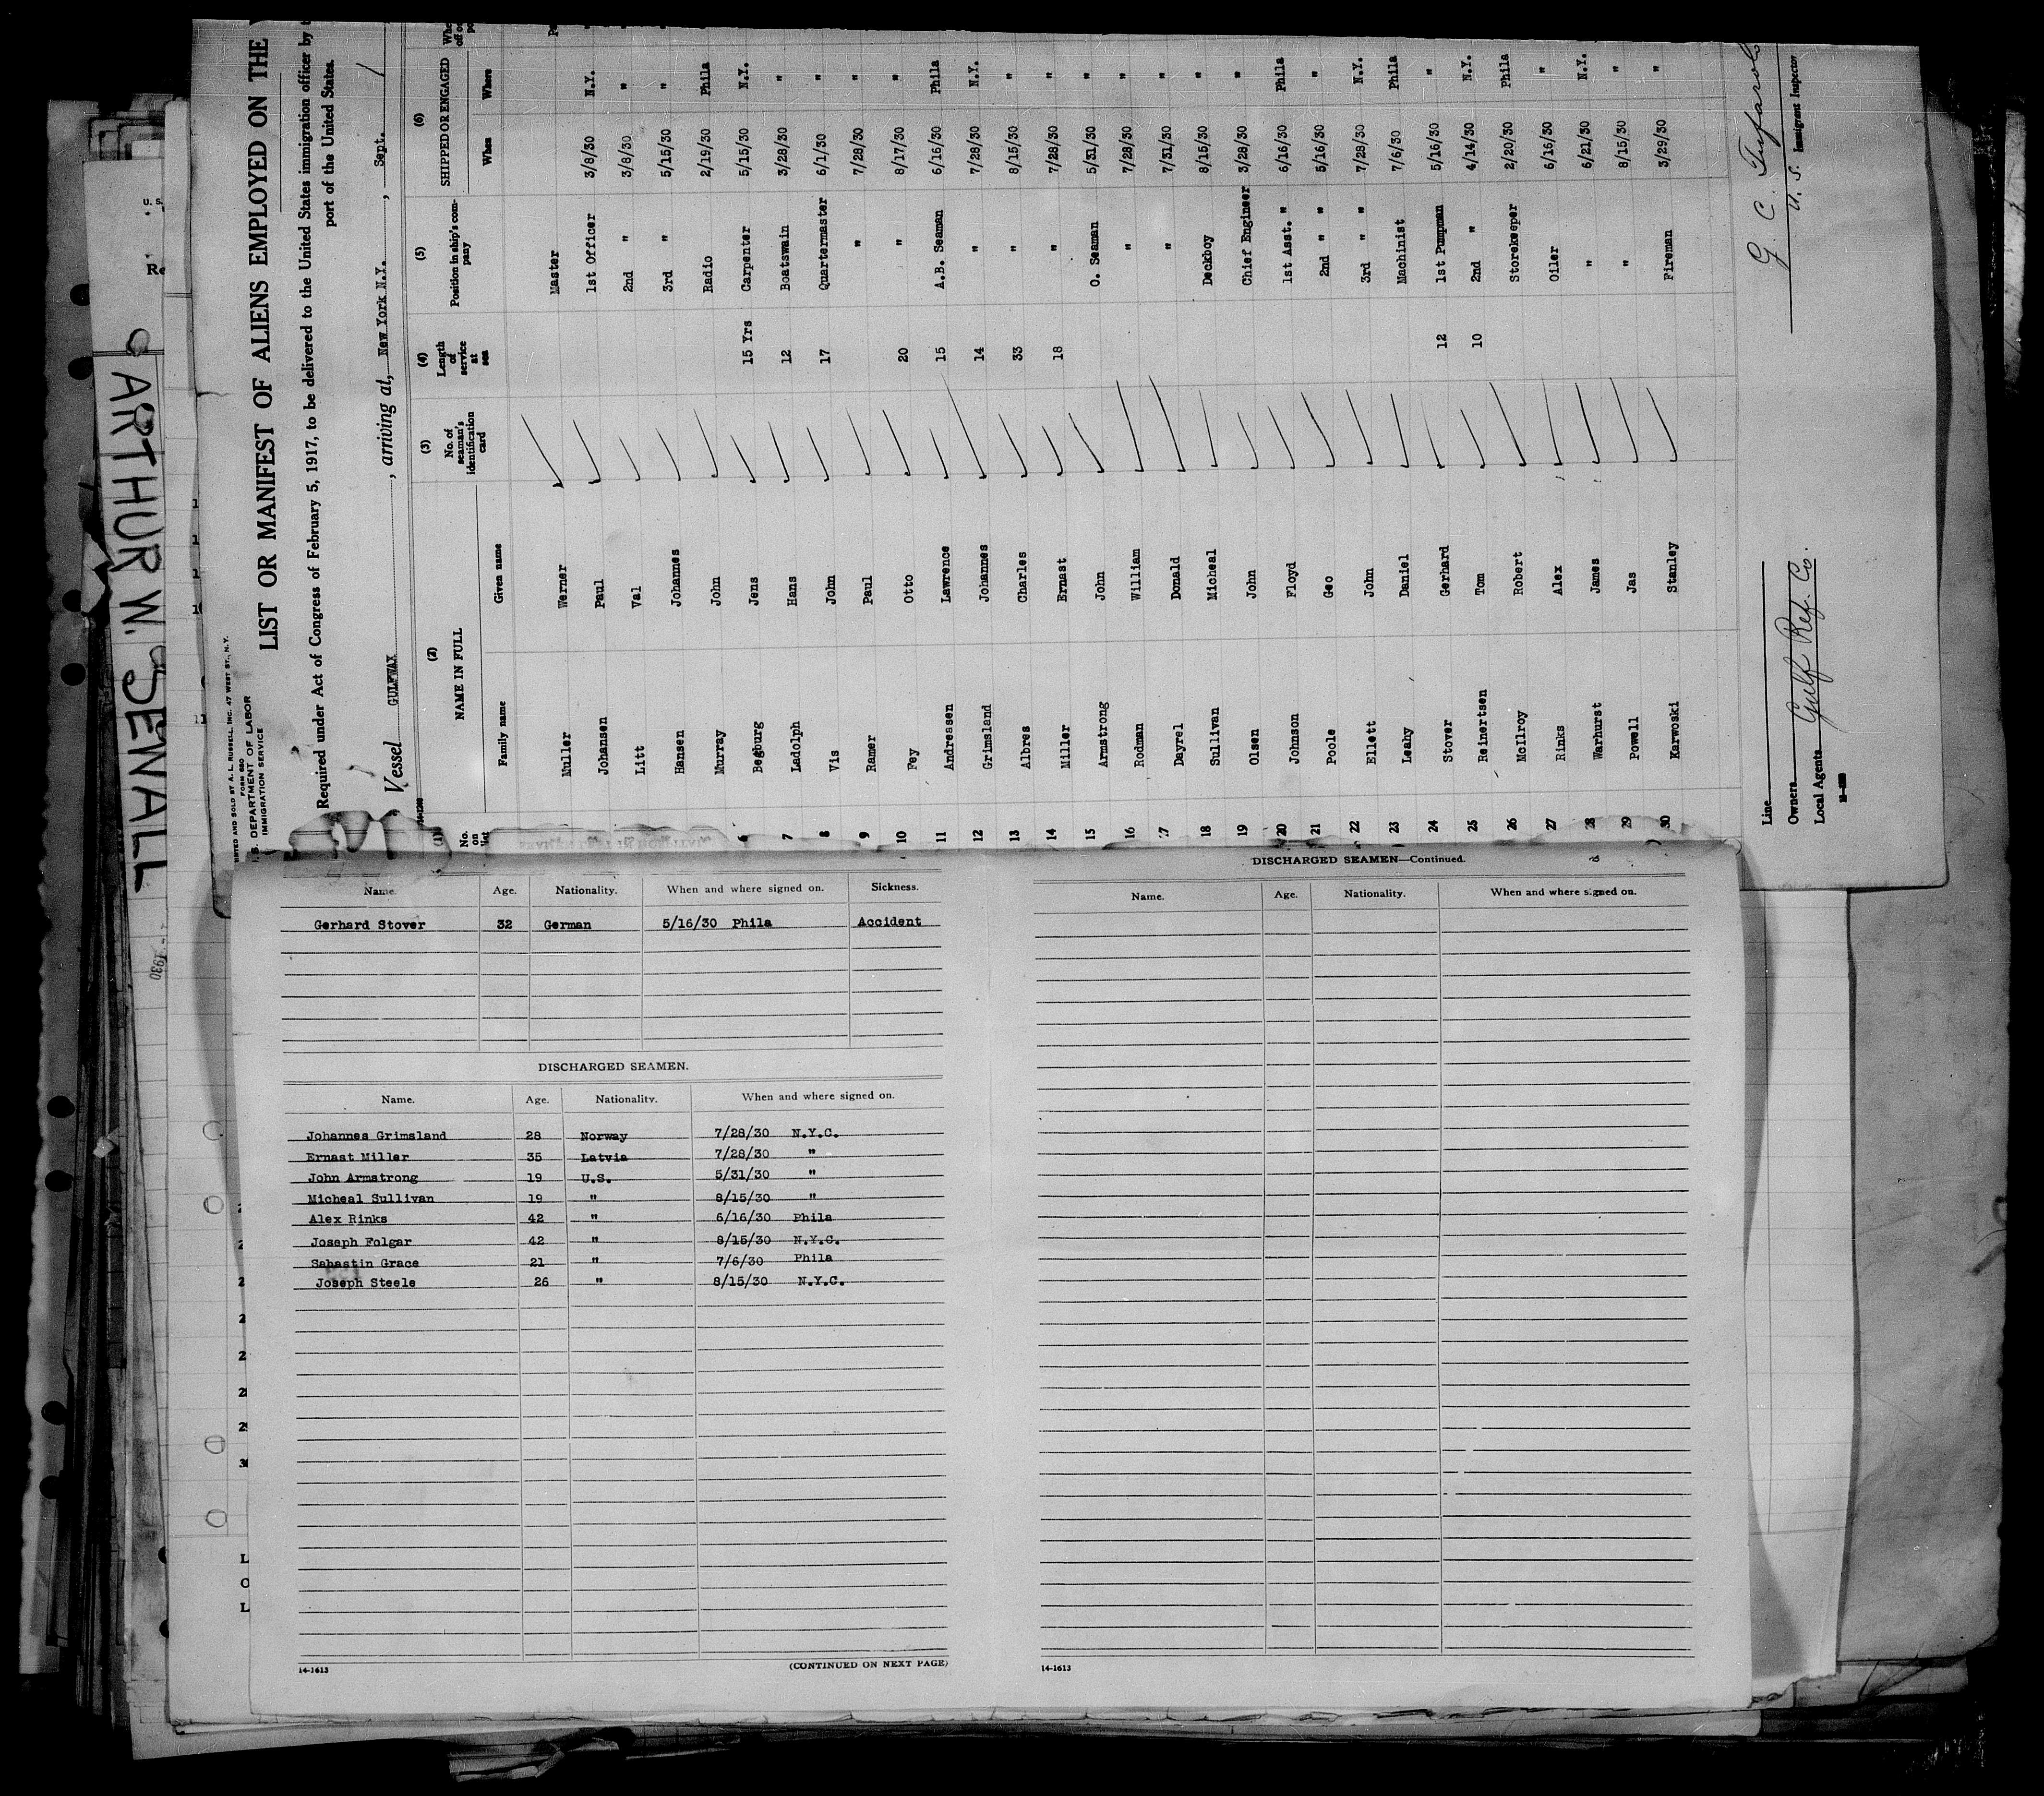 ARTHUR W. SEWALL
PRINTED AND SOLD BY A. L. RUSSELL, INC. 47 WEST ST., N.Y.
FORM 680
U. S. DEPARTMENT OF LABOR
IMMIGRATION SERVICE
LIST OR MANIFEST OF ALIENS EMPLOYED ON THE
Required under Act of Congress of February 5, 1917, to be delivered to the United States immigration officer by
port of the United States.
Vessel GULFWAX, arriving at, New York N.Y., Sept. 1
(1) (2) (3) (4) (5) (6)
No. on list NAME IN FULL No. of seaman's identification card Length of service at sea Position in ship's company SHIPPED OR ENGAGED
Family name Given name When Where
Muller Werner Master
Johansen Paul 1st Officer 3/8/30 N.Y.
Litt Val 2nd " 3/8/30 "
Hansen Johannes 3rd " 5/15/30 "
Murray John Radio 2/19/30 Phila
6 Begburg Jens 15 Yrs Carpenter 5/15/30 N.Y.
7 Ladolph Hans 12 Boatswain 3/28/30 "
8 Vis John 17 Quartermaster 6/1/30 "
9 Ramer Paul " 7/28/30 "
10 Fey Otto 20 " 8/17/30 "
11 Andresen Lawrence 15 A.B. Seaman 6/16/30 Phila
12 Grimsland Johannes 14 " 7/28/30 N.Y.
13 Albres Charles 33 " 8/15/30 "
14 Miller Ernast 18 " 7/28/30 "
15 Armstrong John O. Seaman 5/31/30 "
16 Rodman William " 7/28/30 "
17 Dayrel Donald " 7/31/30 "
18 Sullivan Micheal Deckboy 8/15/30 "
19 Olsen John Chief Engineer 3/28/30 "
20 Johnson Floyd 1st Asst. " 6/16/30 Phila
21 Poole Geo 2nd " " 5/16/30 "
22 Ellett John 3rd " " 7/28/30 N.Y.
23 Leahy Daniel Machinist 7/6/30 Phila
24 Stover Gerhard 12 1st Pumpman 5/16/30 "
25 Reinertsen Tom 10 2nd " 4/14/30 N.Y.
26 McIlroy Robert Storekeeper 2/20/30 Phila
27 Rinks Alex Oiler 6/16/30 "
28 Warhurst James " 6/21/30 N.Y.
29 Powell Jas " 8/15/30 "
30 Karwoski Stanley Fireman 3/29/30 "
Line
Owners Gulf Ref. Co.
Local Agents
G. C.
U. S. Immigrant Inspector
Name. Age. Nationality. When and where signed on. Sickness.
Gerhard Stover 32 German 5/16/30 Phila Accident
DISCHARGED SEAMEN.
Name. Age. Nationality. When and where signed on.
Johannes Grimsland 28 Norway 7/28/30 N.Y.C.
Ernast Miller 35 Latvia 7/28/30 "
John Armstrong 19 U.S. 5/31/30 "
Micheal Sullivan 19 " 8/15/30 "
Alex Rinks 42 " 6/16/30 Phila
Joseph Folgar 42 " 8/15/30 N.Y.C.
Sabastin Grace 21 " 7/6/30 Phila
Joseph Steele 26 " 8/15/30 N.Y.C.
14-1613 (CONTINUED ON NEXT PAGE)
DISCHARGED SEAMEN—Continued.
Name. Age. Nationality. When and where signed on.
14-1613